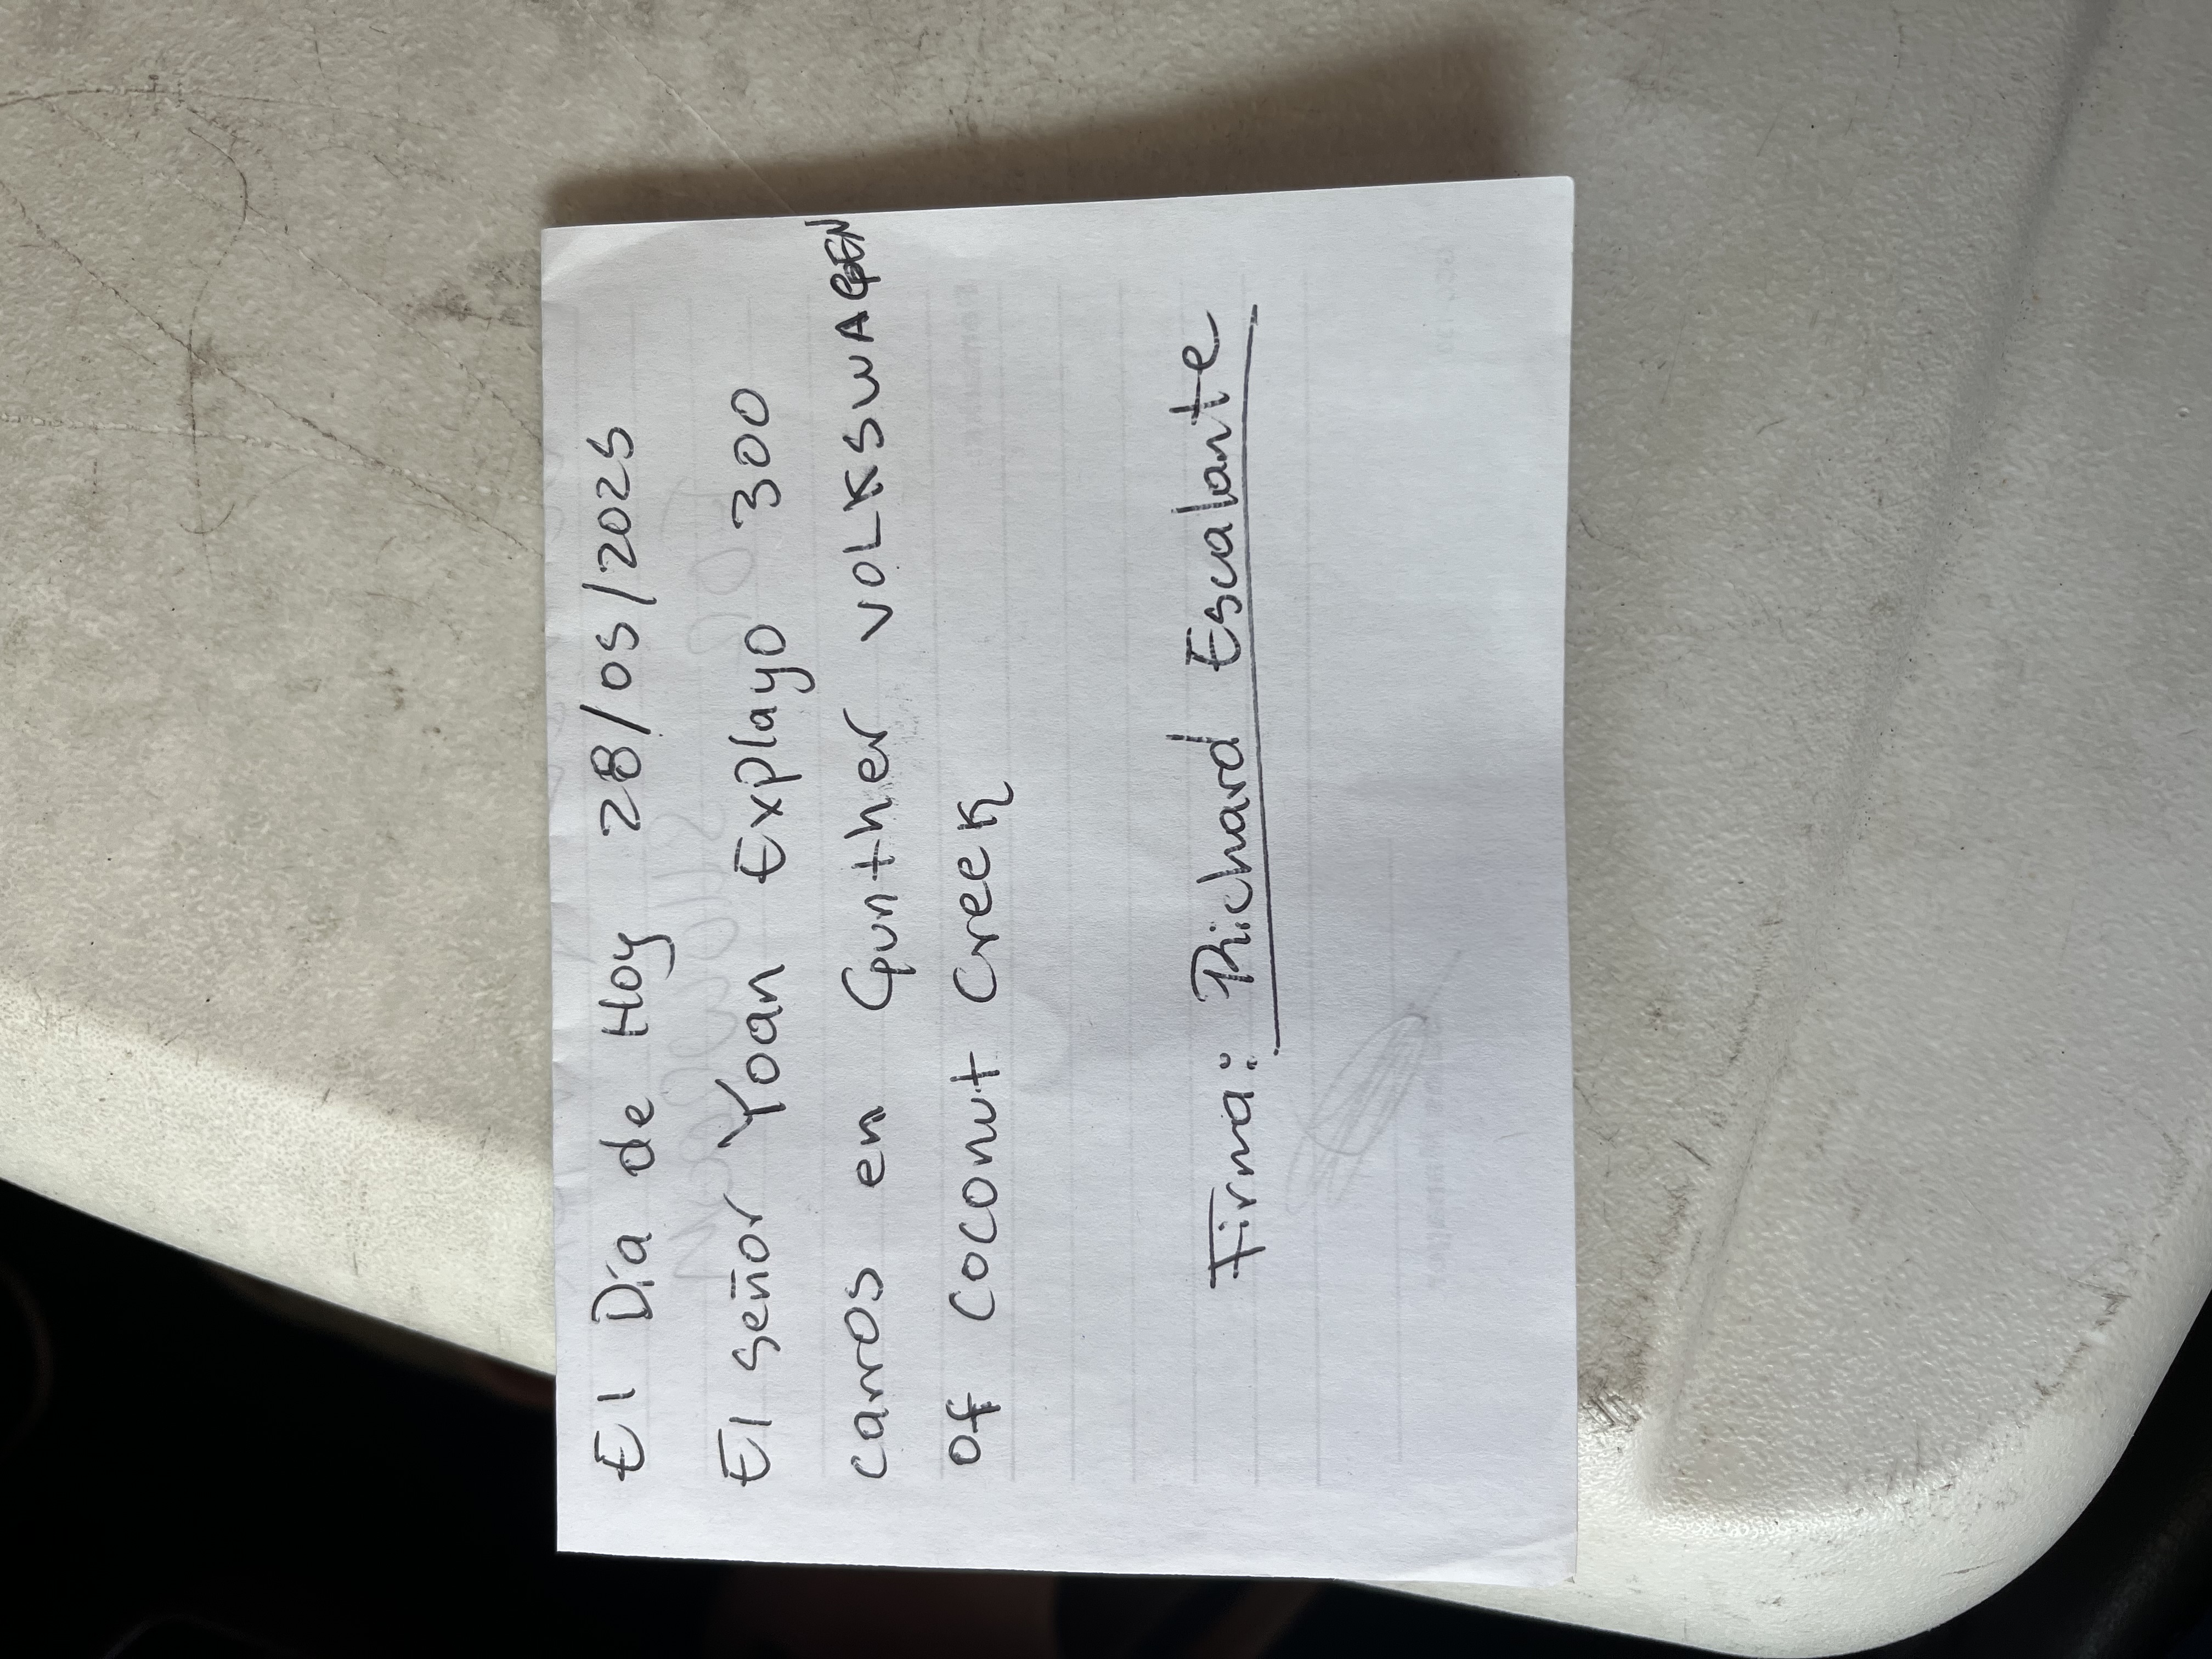 El Día de Hoy 28/05/2025
El señor Yoan Explayo 300
carros en Gunther VOLKSWAGEN
of coconut creek
Firma: Richard Escalante